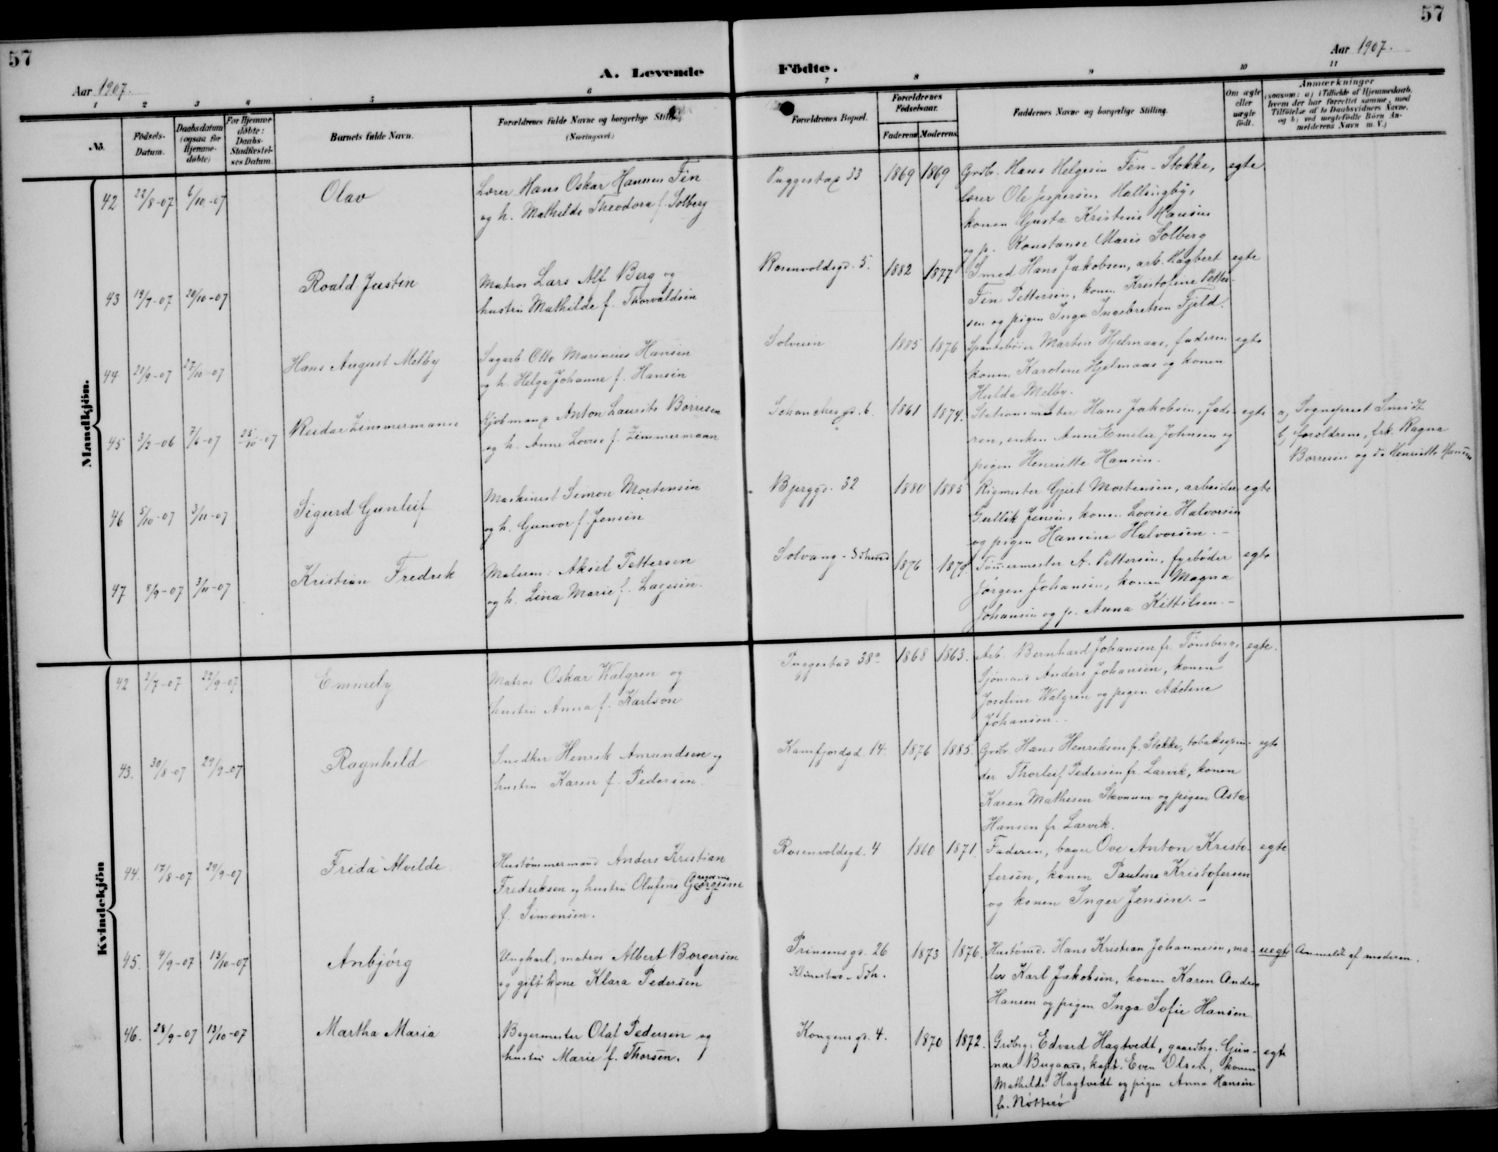 57
57
Aar 1907.
A. Levende
Födte.
Aar 1907.
1 2 3 4 5 6 7 8 9 10 11
No.
Fødsels-
Datum.
Daabsdatum
(ogsaa for
Hjemme-
døbte)
For Hjemme-
døbte:
Daabs-
Stadfæstel-
ses Datum.
Barnets fulde Navn.
Forældrenes fulde Navne og borgerlige Stilling
(Næringsvei)
Forældrenes Bopæl.
Forældrenes
Fødselsaar.
Faderens Moderens
Faddernes Navne og borgerlige Stilling.
Om ægte
eller
uægte
født.
Anmærkninger
Mandkjön.
42 22/8-07 6/10-07 Olav
Lærer Hans Oskar Hannes Fen
og h. Mathilde Theodora f. Solberg
Puggestad 33 1869 1869
Grdbr. Hans Helgesen Fen - Stokke, egte
lærer Ole Jespersen, Hallingby,
konen Gusta Kristine Hansen
og p. Konstanse Marie Solberg
43 19/7-07 20/10-07 Roald Justin
Matros Lars Alf Berg og
hustru Mathilde f. Thorvaldsen
Rosenvoldsgd. 5. 1882 1877
Smed Hans Jakobsen, arb. Hagbert egte
Fin Pettersen, konen Kristofine Petter-
sen og pigen Inga Ingebretsen Fjeld.
44 21/9-07 27/10-07 Hans August Melby
Sagarb. Otto Marinius Hansen
og h. Helga Johanne f. Hansen
Solveien 1885 1876
Marten Hjelmaas, faderen egte
konen Karoline Hjelmaas og konen
Hulda Melby.
45 3/2-06 7/6-07 25/10-07 Reidar Zimmermann
Kjøbmand Anton Laurits Børresen
og h. Anna Lovise f. Zimmermann
6. 1861 1874.
Stationsmester Hans Jakobsen, fade- egte
ren, enken Anne Emelie Johnsen og
pigen Henriette Hansen.
a, Sogneprest Smidt
b, Forældrene, frk. Ragna
Børresen og do Henriette Hansen
46 5/10-07 3/11-07 Sigurd Gunleif
Maskinist Simon Mortensen
og h. Gunvor f. Jensen
Bjerggd. 32 1880 1885
Rigmester Gjert Mortensen, arbeider egte
Gullik Jensen, konen Lovise Halvorsen
og pigen Hansine Halvorsen. -
47 8/9-07 3/11-07 Kristian Fredrik
Maleren Aksel Pettersen
og h. Lina Marie f. Lagesen.
Solvang - 1876 1879
Tømmermester A. Pettersen, fyrbøder egte
Jørgen Johansen, konen Magna
Johansen og p. Anna Kittilsen. -
Kvindekjön
42 2/7-07 22/9-07 Emmely
Matros Oskar Walgren og
hustru Anna f. Karlson
Puggestad 38a 1868 1863.
Arb. Bernhard Johansen fr. Tønsberg, egte.
Sjømand Anders Johansen, konen
Josefine Walgren og pigen Adeline
Johansen.
43. 30/8-07 29/9-07 Ragnhild
Snedker Henrik Amundsen og
hustru Karen f. Pedersen.
Kamfjordgd. 14. 1876 1885.
Grdbr. Hans Henriksen fr. Stokke, tobaksspin- egte
der Thorleif Pedersen fr. Larvik, konen
Karen Mathisen Stavnum og pigen Asta
Hansen fr. Larvik.
44. 17/8-07 29/9-07 Frida Alvilde
Hustømmermand Anders Kristian
Fredriksen og hustru Olufine Georgine
f. Simensen.
Rosenvoldsgd. 4 1860 1871.
Faderen, bager Ove Anton Kristo- egte
fersen, konen Pauline Kristofersen
og konen Inger Jensen. -
45. 4/9-07 13/10-07 Anbjørg
Ungkarl, matros Albert Borgersen
og gift kone Klara Pedersen
Prinsensgd. 26
1873 1876.
Hustømd. Hans Kristian Johannesen, ma- uegte
ler Karl Jakobsen, konen Karen Andrea
Hansen og pigen Inga Sofie Hansen
Anmeldt af moderen.
46. 28/9-07 13/10-07 Martha Maria
Bøgermester Olaf Pedersen og
hustru Marie f. Thorsen.
Kongensgd. 4. 1870 1872.
Grdbrg. Edvard Hagtvedt, gaardbrg. Gun- egte
nar Bugaard, kapt. Even Olsen, konen
Mathilde Hagtvedt og pigen Anna Hansen
fr. Nøtterø